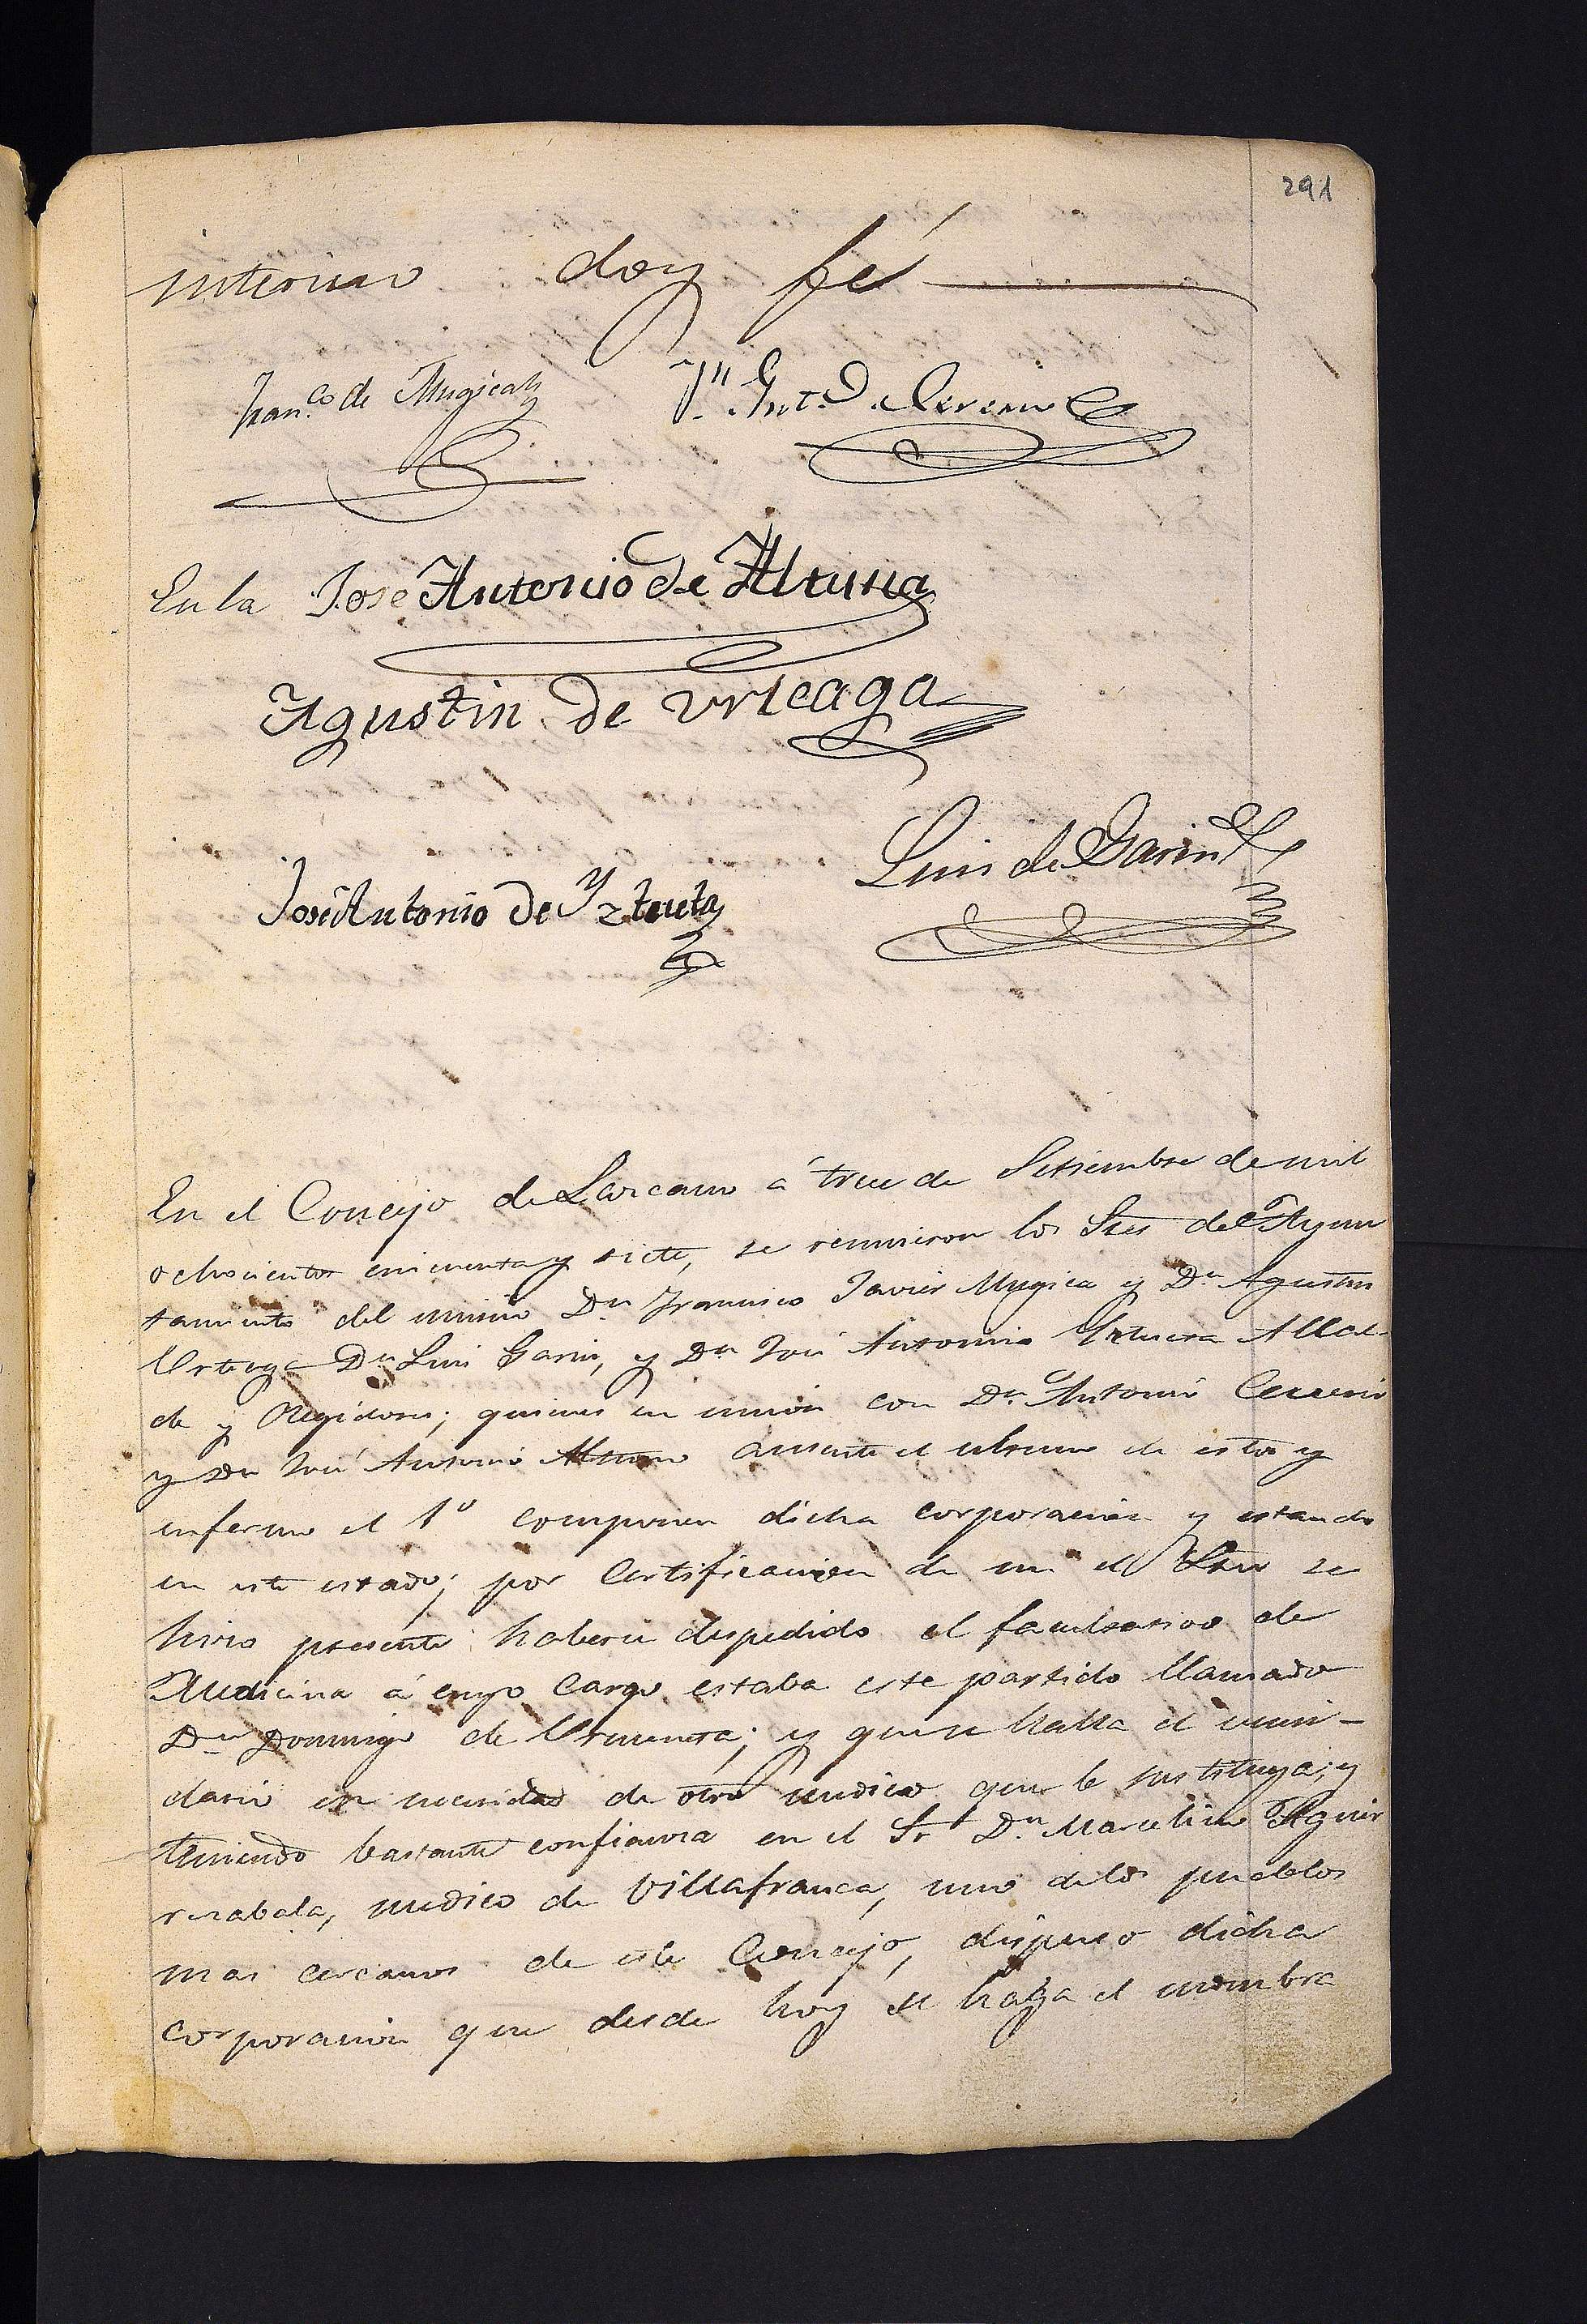 291
interino doy fé
Fran.co de Mugica
J.n Ant.o de Cerezino
En la José Antonio de Altuna
Agustin de Urteaga
Luis de Garin
José Antonio de Yztueta
En el Concejo de Lazcano á trece de Setiembre de mil
ochocientos cincuenta y siete, se reunieron los Sres del Ayun
tamiento del mismo Dn Francisco Javier Mugica y Dn Agustin
Urteaga Dn Luis Garin, y Dn José Antonio Yztueta Alcal-
de y Regidores; quienes en union con Dn Antonio
y Dn José Antonio Altuna ausente el ultimo de estos y
enfermo el 1º componen dicha corporacion y estando
en este estado; por certificacion de mi el Srio se
hizo presente haberse despedido el facultativo de
Medicina á cuyo cargo estaba este partido llamado
Dn Domingo de Ormaeta; y que se halla el vecin-
dario en necesidad de otro medico que le sustituya; y
teniendo bastante confianza en el Sr Dn Marcelino Aguir
rezabala, medico de Villafranca, uno de los pueblos
mas cercanos de este Concejo, dispuso dicha
corporacion que desde hoy se haga el nombra